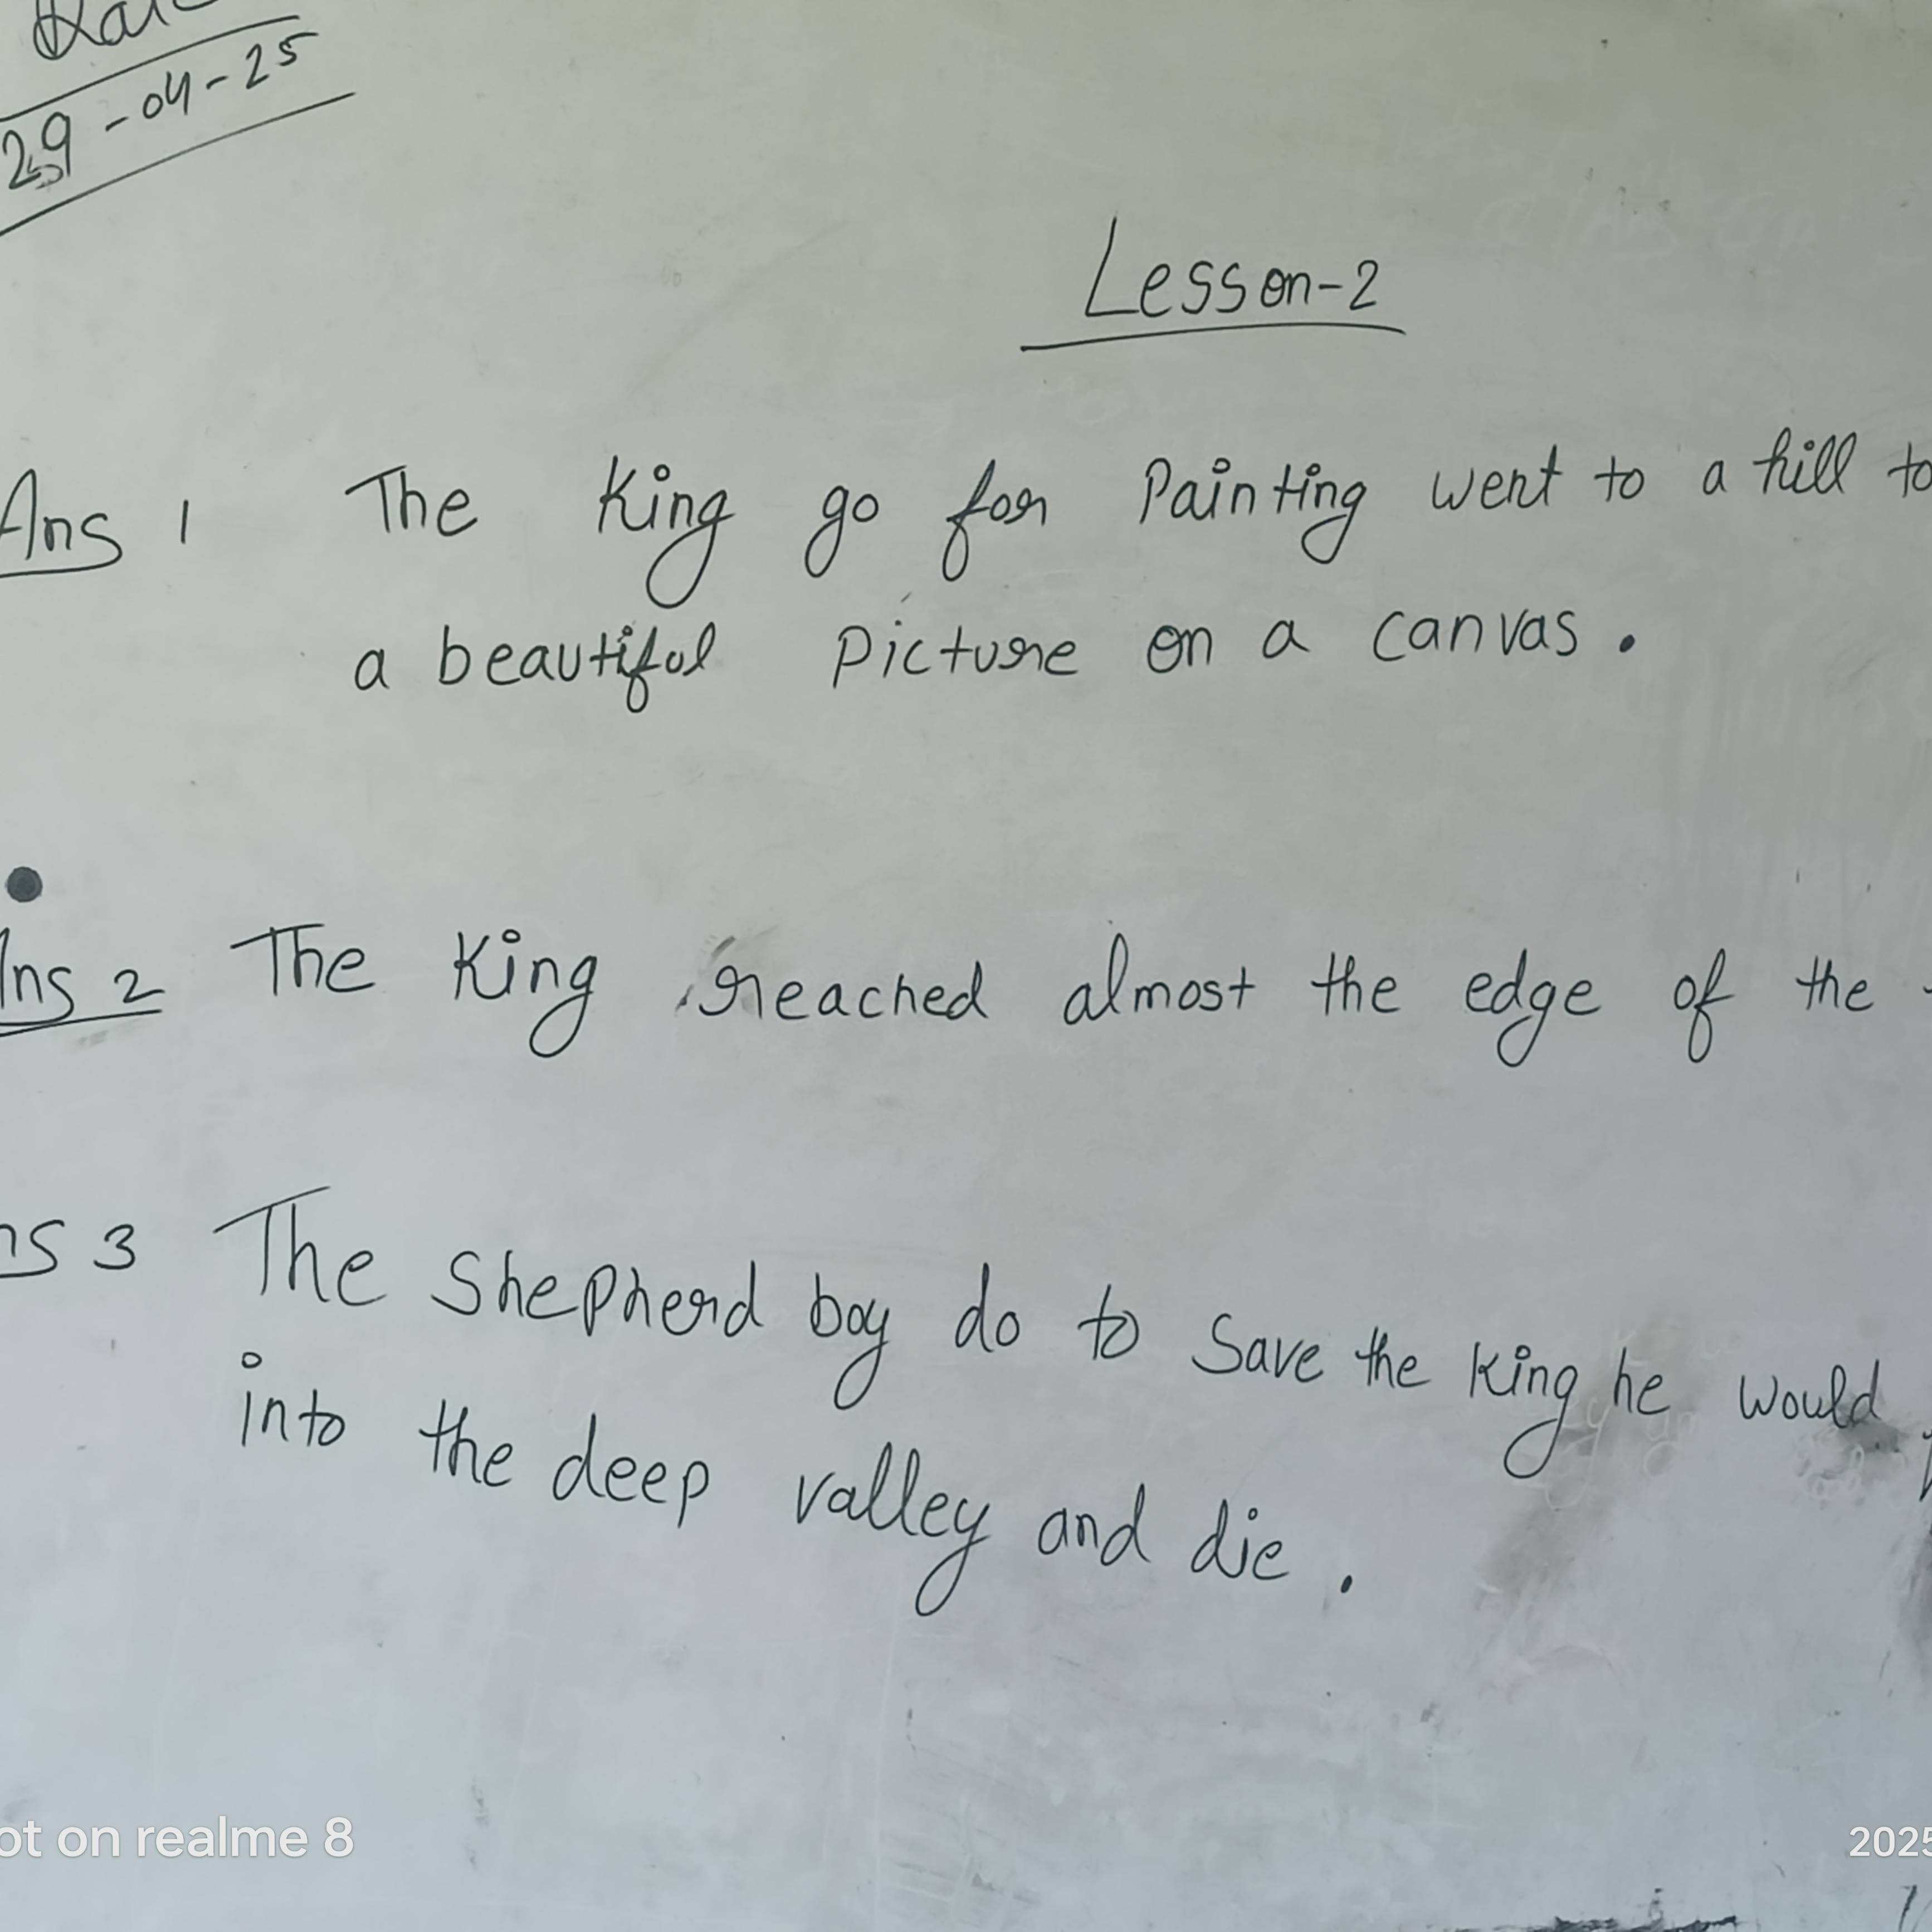 29-04-25
Lesson-2
Ans 1 The King go for Painting went to a hill to
a beautiful Picture on a canvas.
Ans 2 The King reached almost the edge of the
ns 3 The Shepherd boy do to Save the King he would
into the deep valley and die.
ot on realme 8
2025